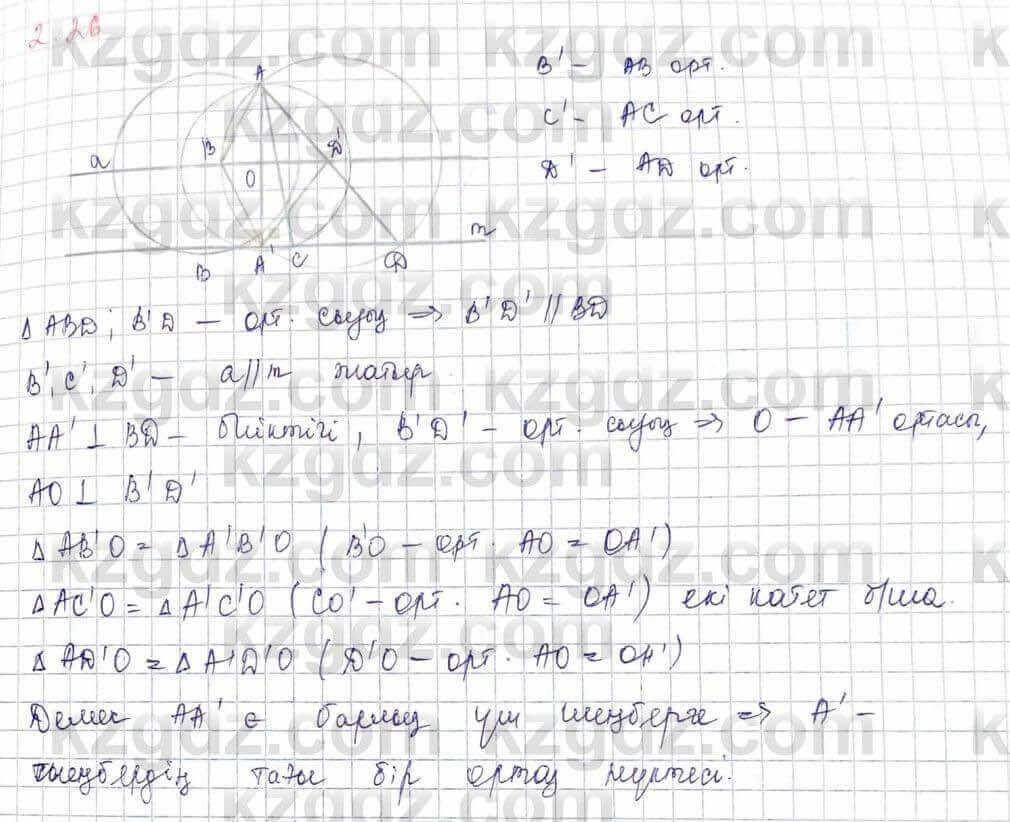 2.26
B' – AB орт.
C' – AC орт.
D' – AD орт.
A
a
B
D'
O
m
B
A'
C
D
Δ ABD; B'D – орт. сызық ⇒ B'D' // BD
B', C', D' – a//m жатыр.
AA' ⊥ BD – биіктігі, B'D' – орт. сызық ⇒ O – AA' ортасы,
AO ⊥ B'D'
Δ AB'O = Δ A'B'O (B'O – орт. AO = OA')
Δ AC'O = Δ A'C'O (CO' – орт. AO = OA') екі катет б/ша.
Δ AD'O = Δ A'D'O (D'O – орт. AO = OA')
Демек AA' ∈ барлық үш шеңберге ⇒ A' –
шеңбердің тағы бір ортақ нүктесі.
kzgdz.com